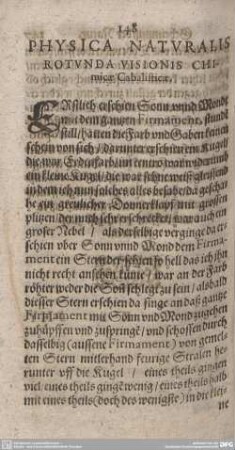 148
PHYSICA NATVRALIS
ROTVNDA VISIONIS CHI-
micæ Cabalisticæ.
ERstlich erschien Sonn vnnd Mondt
mit dem gantzen Firmament, stundt
still / hatten die Farb vnd Gaben keinen
schein von sich / darunter erschien ein Kugel /
die war Erdtfarb im centro war widerumb
ein kleine Kugel / die war schneeweiß gleissend
in dem ich nun solches alles besahe / da geschah
ein grewlicher Donnerklapff mit grossen
pligen der mich sehr erschrecket / war auch ein
grosser Nebel / als derselbige verginge da er-
schien vber Sonn vnnd Mond dem Firma-
ment ein Stern der schien so hell das ich ihn
nicht recht ansehen künte / war an der Farb
röhter weder die Son schlegt zu sein / alsbald
diesser Stern erschien da finge an daß gantze
Firmament mit Sonn vnd Mond zugehen
zuhüpffen vnd zuspringē / vnd schossen durch
dasselbig (aussene Firmament) von gemel-
ten Stern mitlerhand feurige Stralen her-
runter vff die Kugel / eines theils gingen
viel eines theils gingē wenig / eines theils halb
mit eines theils (doch des wenigste) in die klei-
ne